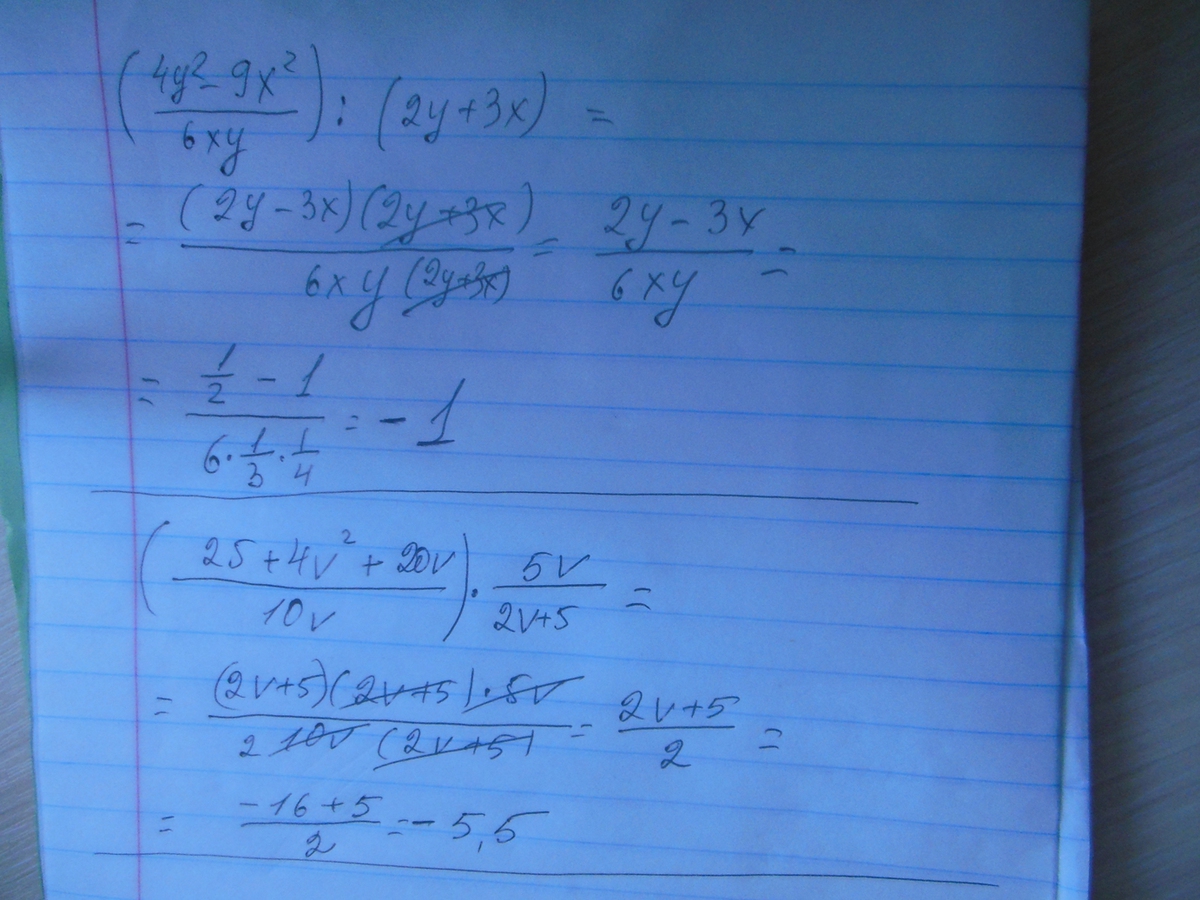 (4y² - 9x² / 6xy) : (2y + 3x) =
= (2y - 3x)(2y + 3x) / 6xy (2y+3x) = 2y - 3x / 6xy =
= 1/2 - 1 / 6 · 1/3 · 1/4 = - 1
(25 + 4v² + 20v / 10v) · 5v / 2v+5 =
= (2v+5)(2v+5) · 5v / 2 10v (2v+5) = 2v+5 / 2 =
= -16 + 5 / 2 = - 5,5